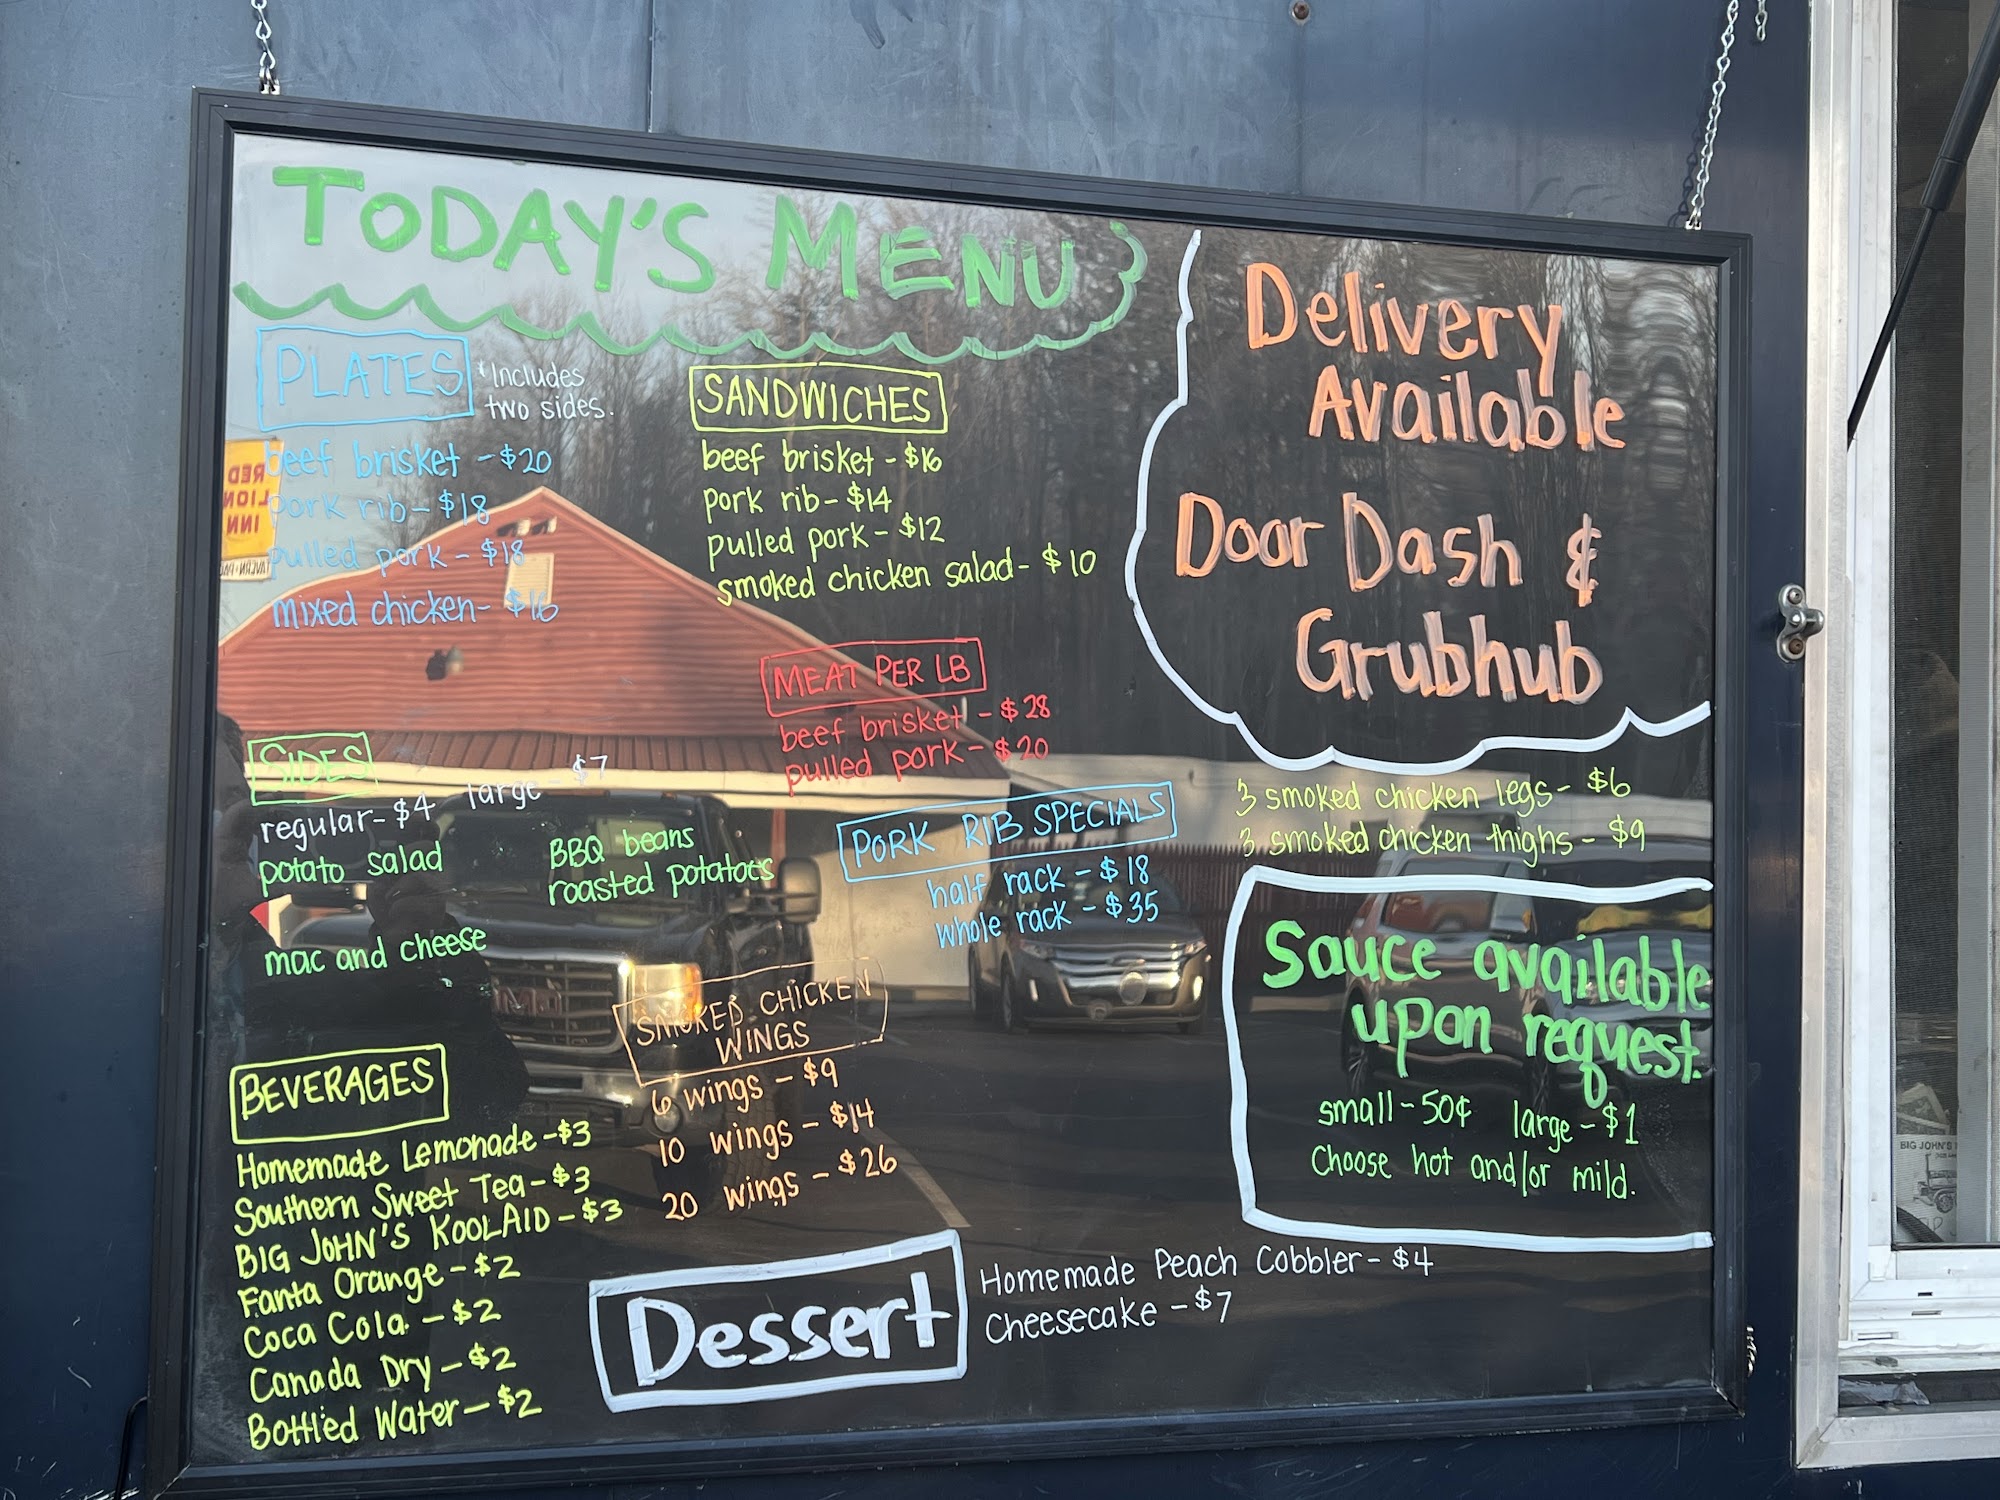 TODAY'S MENU
PLATES *Includes
two sides.
beef brisket - $20
pork rib - $18
pulled pork - $18
mixed chicken - $16
SANDWICHES
beef brisket - $16
pork rib - $14
pulled pork - $12
smoked chicken salad - $10
MEAT PER LB
beef brisket - $28
pulled pork - $20
SIDES
regular - $4 large - $7
potato salad
BBQ beans
roasted potatoes
mac and cheese
PORK RIB SPECIALS
half rack - $18
whole rack - $35
SMOKED CHICKEN
WINGS
6 wings - $9
10 wings - $14
20 wings - $26
BEVERAGES
Homemade Lemonade - $3
Southern Sweet Tea - $3
BIG JOHN'S KOOLAID - $3
Fanta Orange - $2
Coca Cola - $2
Canada Dry - $2
Bottled Water - $2
Dessert
Homemade Peach Cobbler - $4
Cheesecake - $7
Delivery
Available
Door Dash &
Grubhub
3 smoked chicken legs - $6
3 smoked chicken thighs - $9
Sauce available
upon request.
small - 50¢ large - $1
Choose hot and/or mild.
RED
LION
INN
BIG JOHN'S